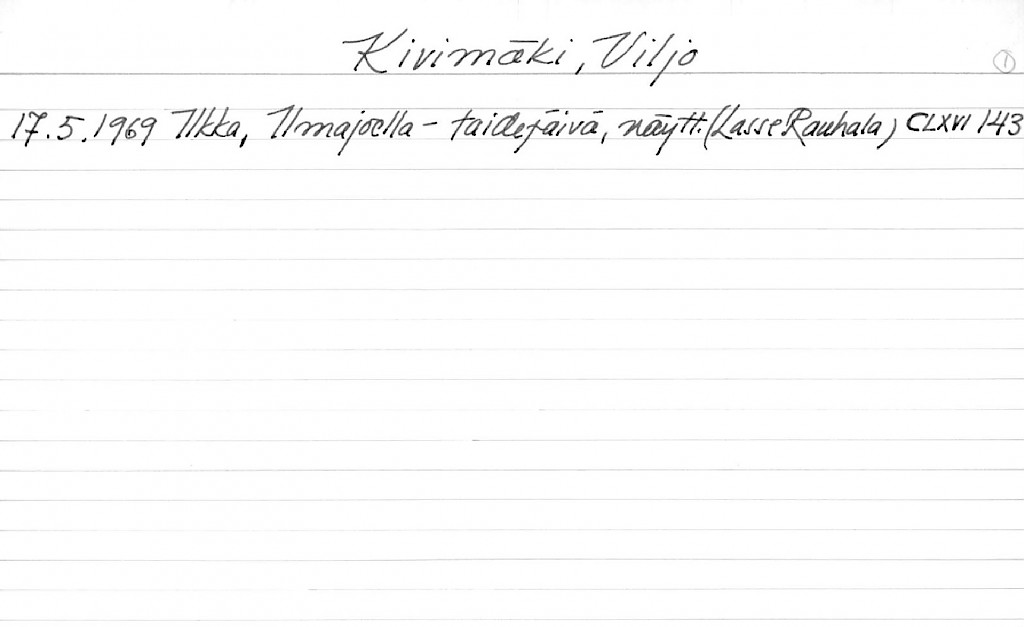 Kivimäki, Viljo
1
17.5.1969 Ilkka, Ilmajoella - taidepäivä, näytt. (Lasse Rauhala) CLXVI 143